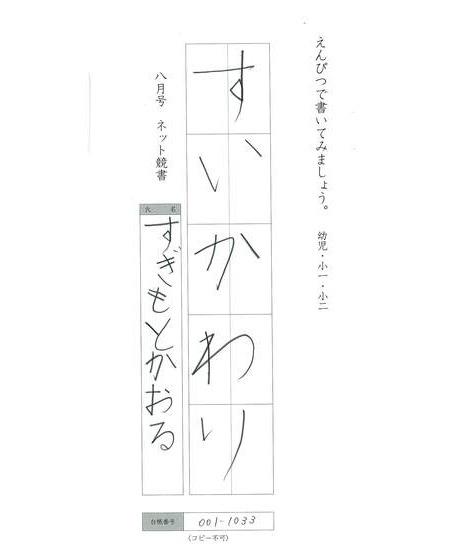 えんぴつで書いてみましょう。 幼児・小一・小二
すいかわり
八月号 ネット競書
氏名
すぎもとかおる
台帳番号 001-1033
(コピー不可)